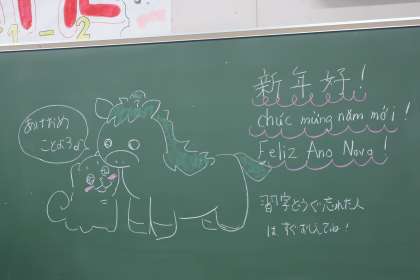 1-2
あけおめ
ことよろ♪
新年好!
chúc mừng năm mới!
Feliz Ano Novo!
習字どうぐ忘れた人
は すぐおしえてね!